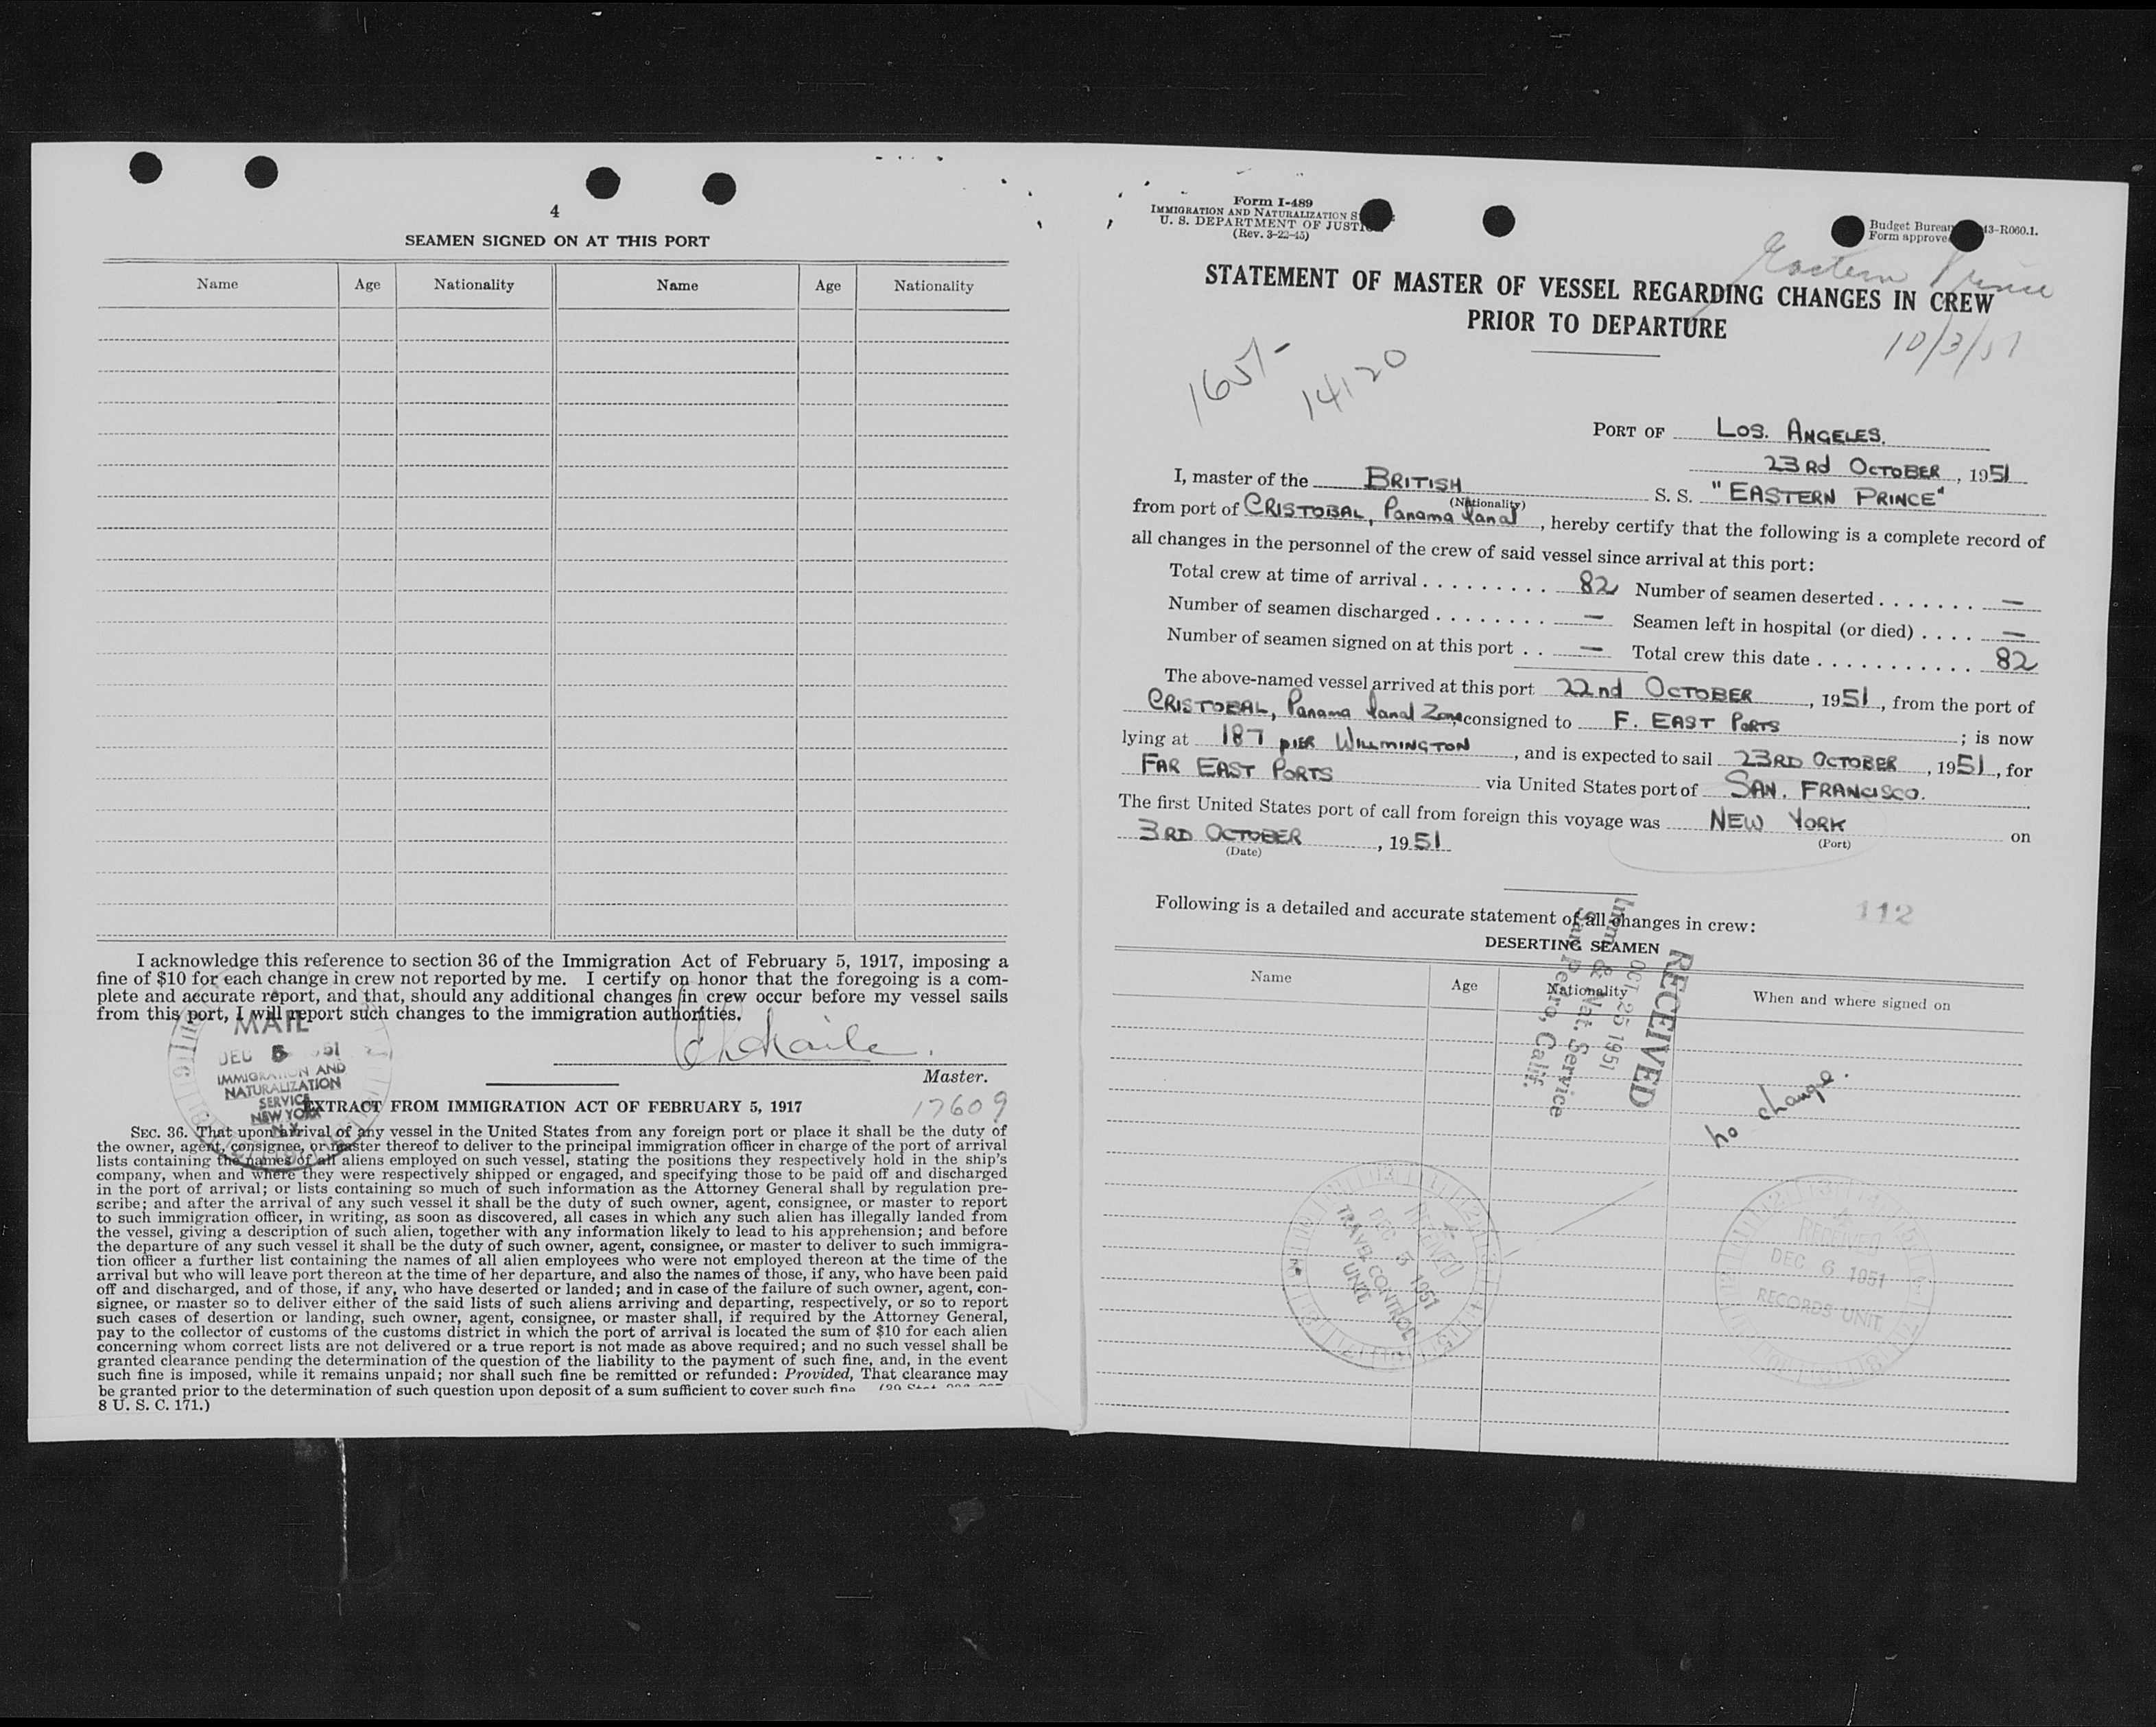 4
SEAMEN SIGNED ON AT THIS PORT
Name Age Nationality Name Age Nationality
I acknowledge this reference to section 36 of the Immigration Act of February 5, 1917, imposing a
fine of $10 for each change in crew not reported by me. I certify on honor that the foregoing is a com-
plete and accurate report, and that, should any additional changes in crew occur before my vessel sails
from this port, I will report such changes to the immigration authorities.
MAIL
DEC 5 51
IMMIGRATION AND
NATURALIZATION
SERVICE
NEW YORK
N.Y.
Master.
EXTRACT FROM IMMIGRATION ACT OF FEBRUARY 5, 1917
17609
SEC. 36. That upon arrival of any vessel in the United States from any foreign port or place it shall be the duty of
the owner, agent, consignee, or master thereof to deliver to the principal immigration officer in charge of the port of arrival
lists containing the names of all aliens employed on such vessel, stating the positions they respectively hold in the ship's
company, when and where they were respectively shipped or engaged, and specifying those to be paid off and discharged
in the port of arrival; or lists containing so much of such information as the Attorney General shall by regulation pre-
scribe; and after the arrival of any such vessel it shall be the duty of such owner, agent, consignee, or master to report
to such immigration officer, in writing, as soon as discovered, all cases in which any such alien has illegally landed from
the vessel, giving a description of such alien, together with any information likely to lead to his apprehension; and before
the departure of any such vessel it shall be the duty of such owner, agent, consignee, or master to deliver to such immigra-
tion officer a further list containing the names of all alien employees who were not employed thereon at the time of the
arrival but who will leave port thereon at the time of her departure, and also the names of those, if any, who have been paid
off and discharged, and of those, if any, who have deserted or landed; and in case of the failure of such owner, agent, con-
signee, or master so to deliver either of the said lists of such aliens arriving and departing, respectively, or so to report
such cases of desertion or landing, such owner, agent, consignee, or master shall, if required by the Attorney General,
pay to the collector of customs of the customs district in which the port of arrival is located the sum of $10 for each alien
concerning whom correct lists are not delivered or a true report is not made as above required; and no such vessel shall be
granted clearance pending the determination of the question of the liability to the payment of such fine, and, in the event
such fine is imposed, while it remains unpaid; nor shall such fine be remitted or refunded: Provided, That clearance may
be granted prior to the determination of such question upon deposit of a sum sufficient to cover such fine
8 U. S. C. 171.)
Form I-489
IMMIGRATION AND NATURALIZATION S
U. S. DEPARTMENT OF JUSTI
(Rev. 3-22-45)
Budget Bureau 43-R060.1.
Form approve
Eastern Prince
STATEMENT OF MASTER OF VESSEL REGARDING CHANGES IN CREW
PRIOR TO DEPARTURE
10/3/51
165/-
14120
PORT OF LOS. ANGELES.
23RD OCTOBER, 1951
I, master of the BRITISH S. S. "EASTERN PRINCE"
(Nationality)
from port of CRISTOBAL, Panama Canal, hereby certify that the following is a complete record of
all changes in the personnel of the crew of said vessel since arrival at this port:
Total crew at time of arrival . . . . . . . . . 82 Number of seamen deserted . . . . . . . —
Number of seamen discharged . . . . . . . . — Seamen left in hospital (or died) . . . . —
Number of seamen signed on at this port . . — Total crew this date . . . . . . . . . . . 82
The above-named vessel arrived at this port 22nd OCTOBER, 1951, from the port of
CRISTOBAL, Panama Canal Zone, consigned to F. EAST PORTS; is now
lying at 187 PIER WILLMINGTON, and is expected to sail 23RD OCTOBER, 1951, for
FAR EAST PORTS via United States port of SAN. FRANCISCO.
The first United States port of call from foreign this voyage was NEW YORK on
(Port)
3RD OCTOBER, 1951
(Date)
112
Following is a detailed and accurate statement of all changes in crew:
DESERTING SEAMEN
Name Age Nationality When and where signed on
RECEIVED
OCT 25 1951
Imm. & Nat. Service
San Pedro, Calif.
no change.
RECEIVED
DEC 5 1951
TRAVEL CONTROL
UNIT
RECEIVED
DEC 6 1951
RECORDS UNIT